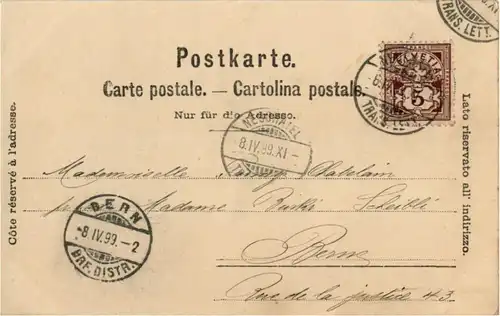 TRANS. LETT.
Postkarte.
Carte postale. — Cartolina postale.
Nur für die Adresse.
Côte réservé à l'adresse.
Lato riservato all' indirizzo.
HELVETIA
5
NEUCHATEL
8.IV.99.XI
Mademoiselle Chatelain
Madame
Berne
Rue de la justice 43
BERN
-8.IV.99.-2
BRF. DISTR.